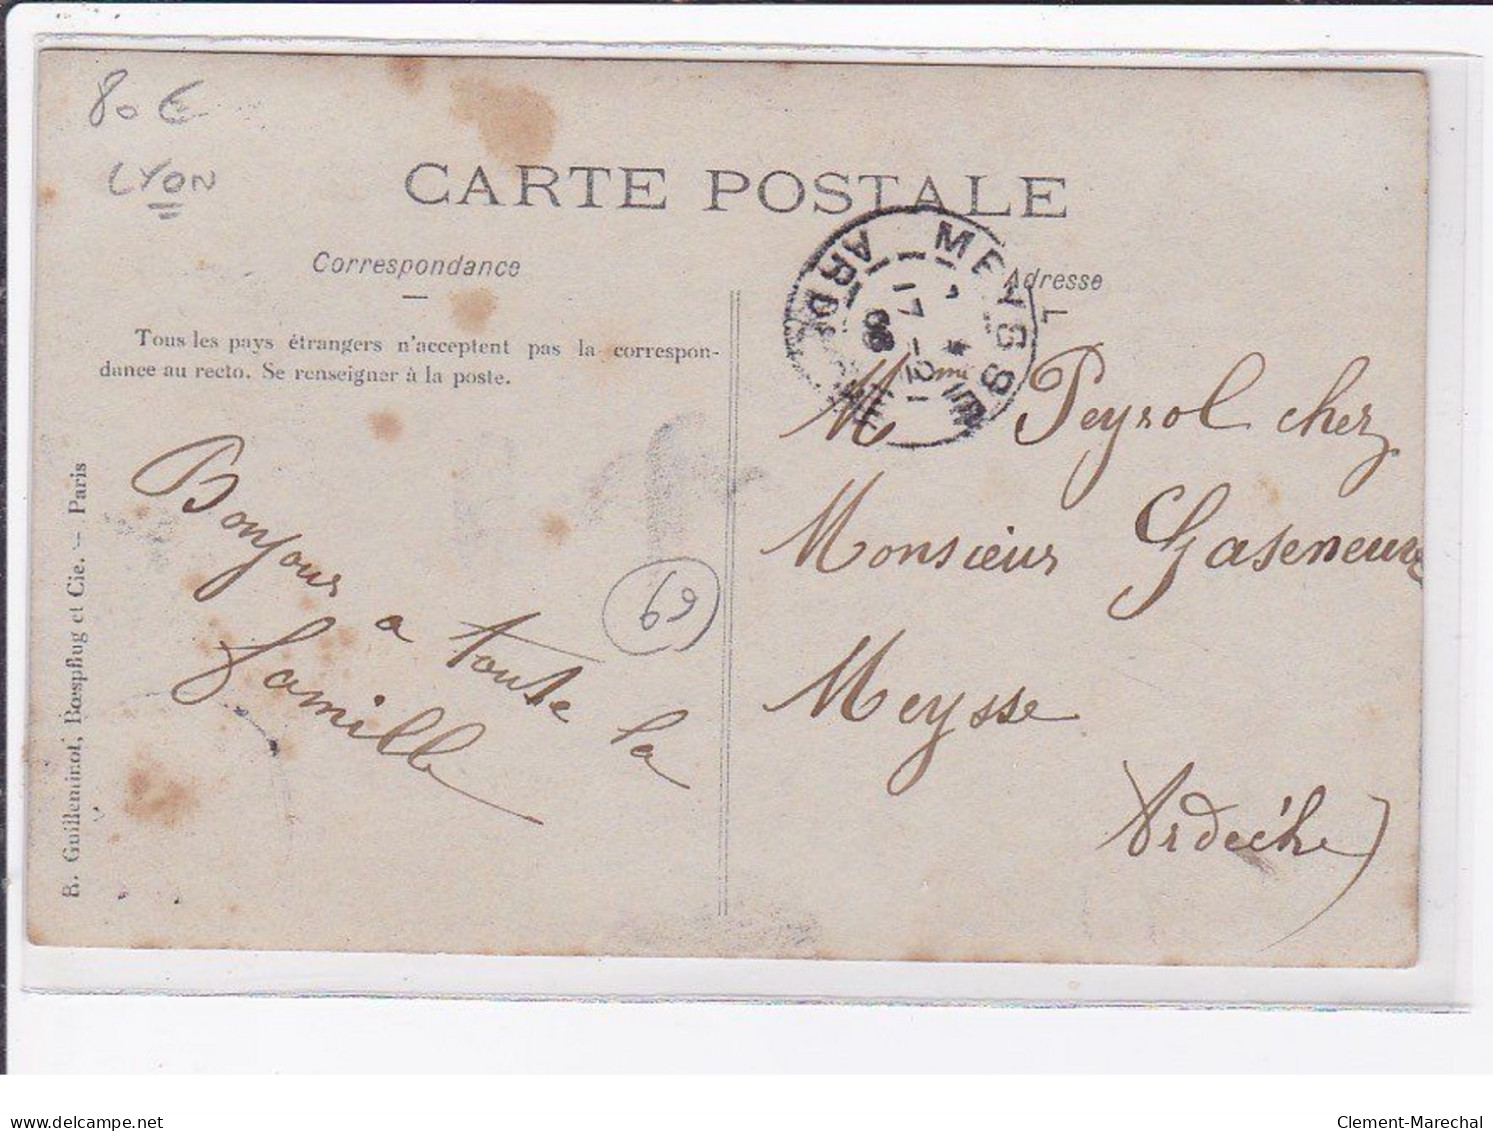 80 €
LYON
CARTE POSTALE
Correspondance
Adresse
Tous les pays étrangers n'acceptent pas la correspon-
dance au recto. Se renseigner à la poste.
MEYSSE
ARDÈCHE
17 -2
08
R. Guilleminot, Bœspflug et Cie. — Paris
Bonjour
a toute la
famille
69
Mmi Peyrol chez
Monsieur Gaseneuve
Meysse
Ardèche)
delcampe.net
Clement-Marechal